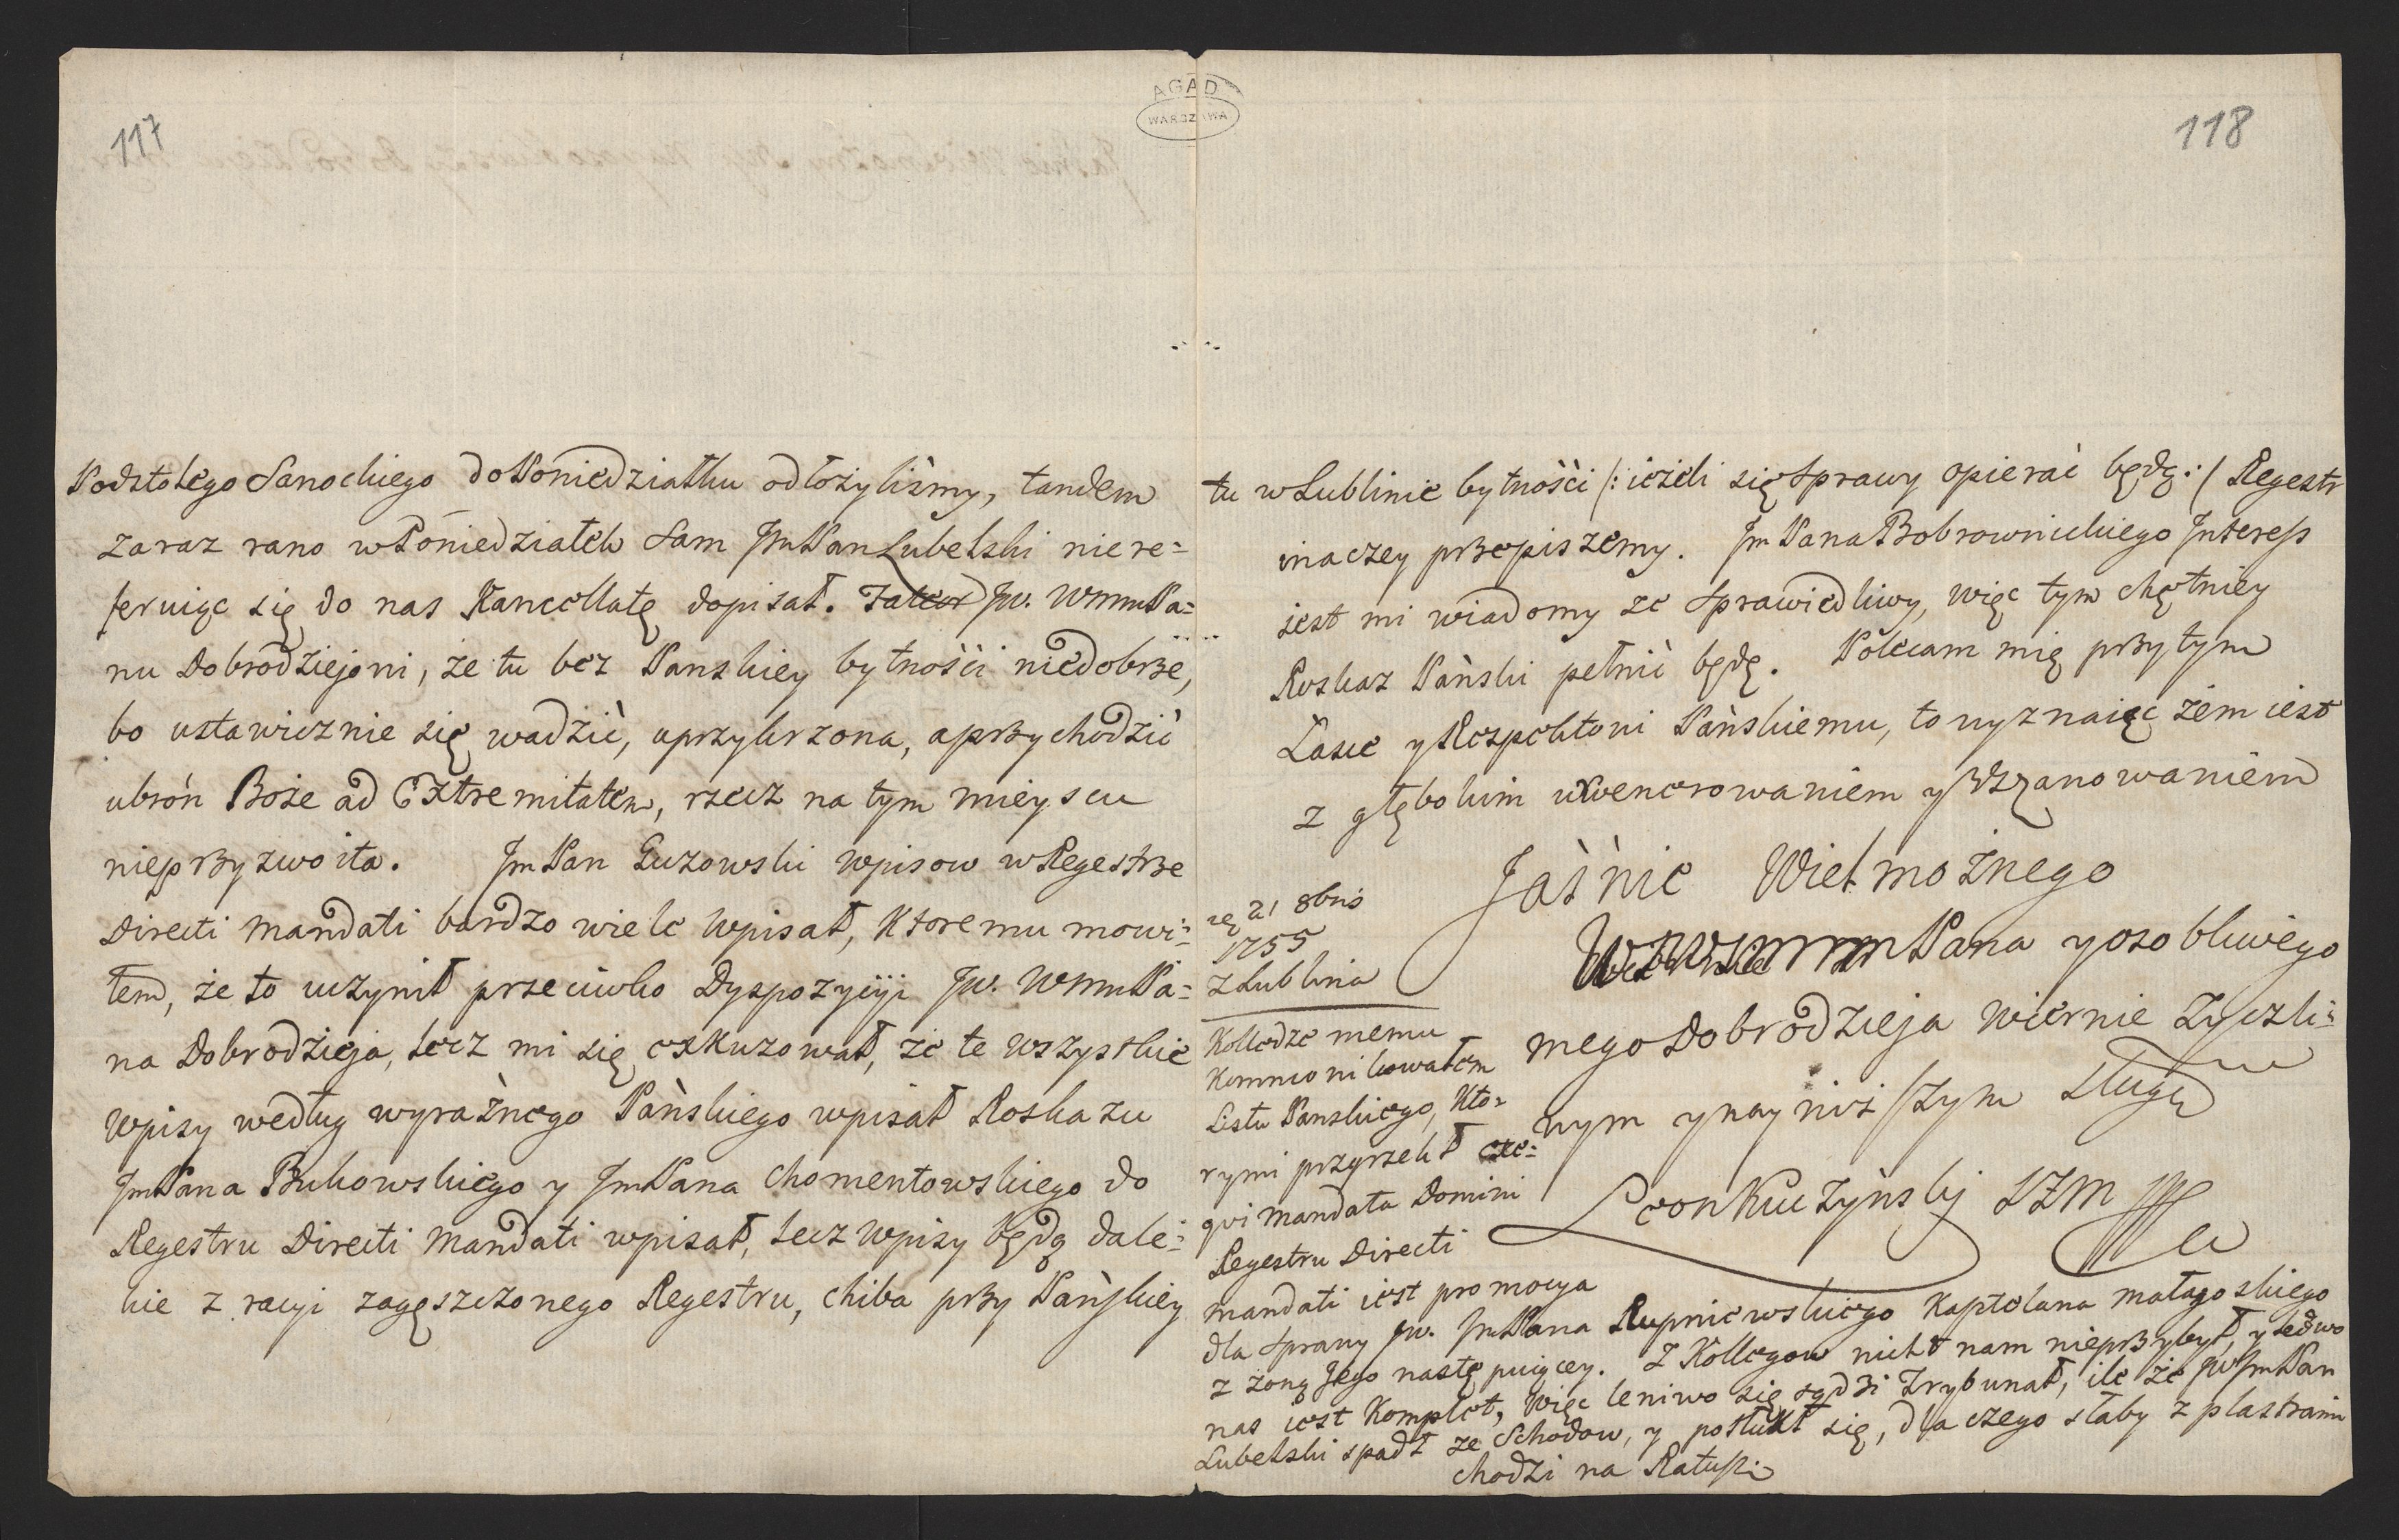 117
AGAD
WARSZAWA
118
Podstolego Sanockiego do Poniedziałku odłożyliśmy, tandem
zaraz rano w Poniedziałek Sam JmPan Lubelski niere=
feruiąc się do nas Kancellatę dopisał. Fateor Jw. WmmPa=
nu Dobrodziejowi, że tu bez Panskiey bytności niedobrze,
bo ustawicznie się wadzić, uprzykrzona, a przychodzić
ubroń Boże ad Extremitatem, rzecz na tym mieyscu
nieprzyzwoita. JmPan Guzowski wpisow w Regestrze
Directi Mandati bardzo wiele wpisał, ktoremu mowi=
łem, że to uczynił przeciwko Dyspozycyi Jw. WmmPa=
na Dobrodzieja, lecz mi się exkuzował, że te wszystkie
wpisy według wyraźnego Pańskiego wpisał Roskazu
JmPana Bukowskiego y JmPana Chomentowskiego do
Regestru Directi Mandati wpisał, lecz wpisy będą dale=
kie z racyi zagęszczonego Regestru, chiba przy Pańskiey
tu w Lublinie bytności /: ieżeli się Sprawy opierać będą :/ Regestr
inaczey przepiszemy. JmPana Bobrownickiego Interess
iest mi wiadomy ze Sprawiedliwy, więc tym chętniey
Roskaz Pański pełnić będę. Polecam mię przytym
Łasce y Respektowi Pańskiemu, to wyznaiąc żem iest
z głębokim uwenerowaniem y Uszanowaniem
Jaśnie Wielmożnego
Pana y osobliwego
mego Dobrodzieja wiernie życzli=
wym y nayniższym Sługą
Leon Kuczyński SZM
21 8bris
1755
z Lublina
Kolledze memu
kommonikowałem
Listu Panskiego, kto=
rymi przyrzekł exe=
qvi mandata Domini
Regestru Directi
mandati iest promocya
dla Sprawy Jw. JmPana Rupniewskiego Kasztelana małagoskiego
z żoną Jego następuiącey. Z Kollegow nicht nam nieprzybył, y ledwo
nas iest Komplet, więc leniwo się sądzi Trybunał, ile że JWJmPan
Lubelski spadł ze Schodow, y potłukł się, dla czego słaby z plastrami
chodzi na Ratusz.